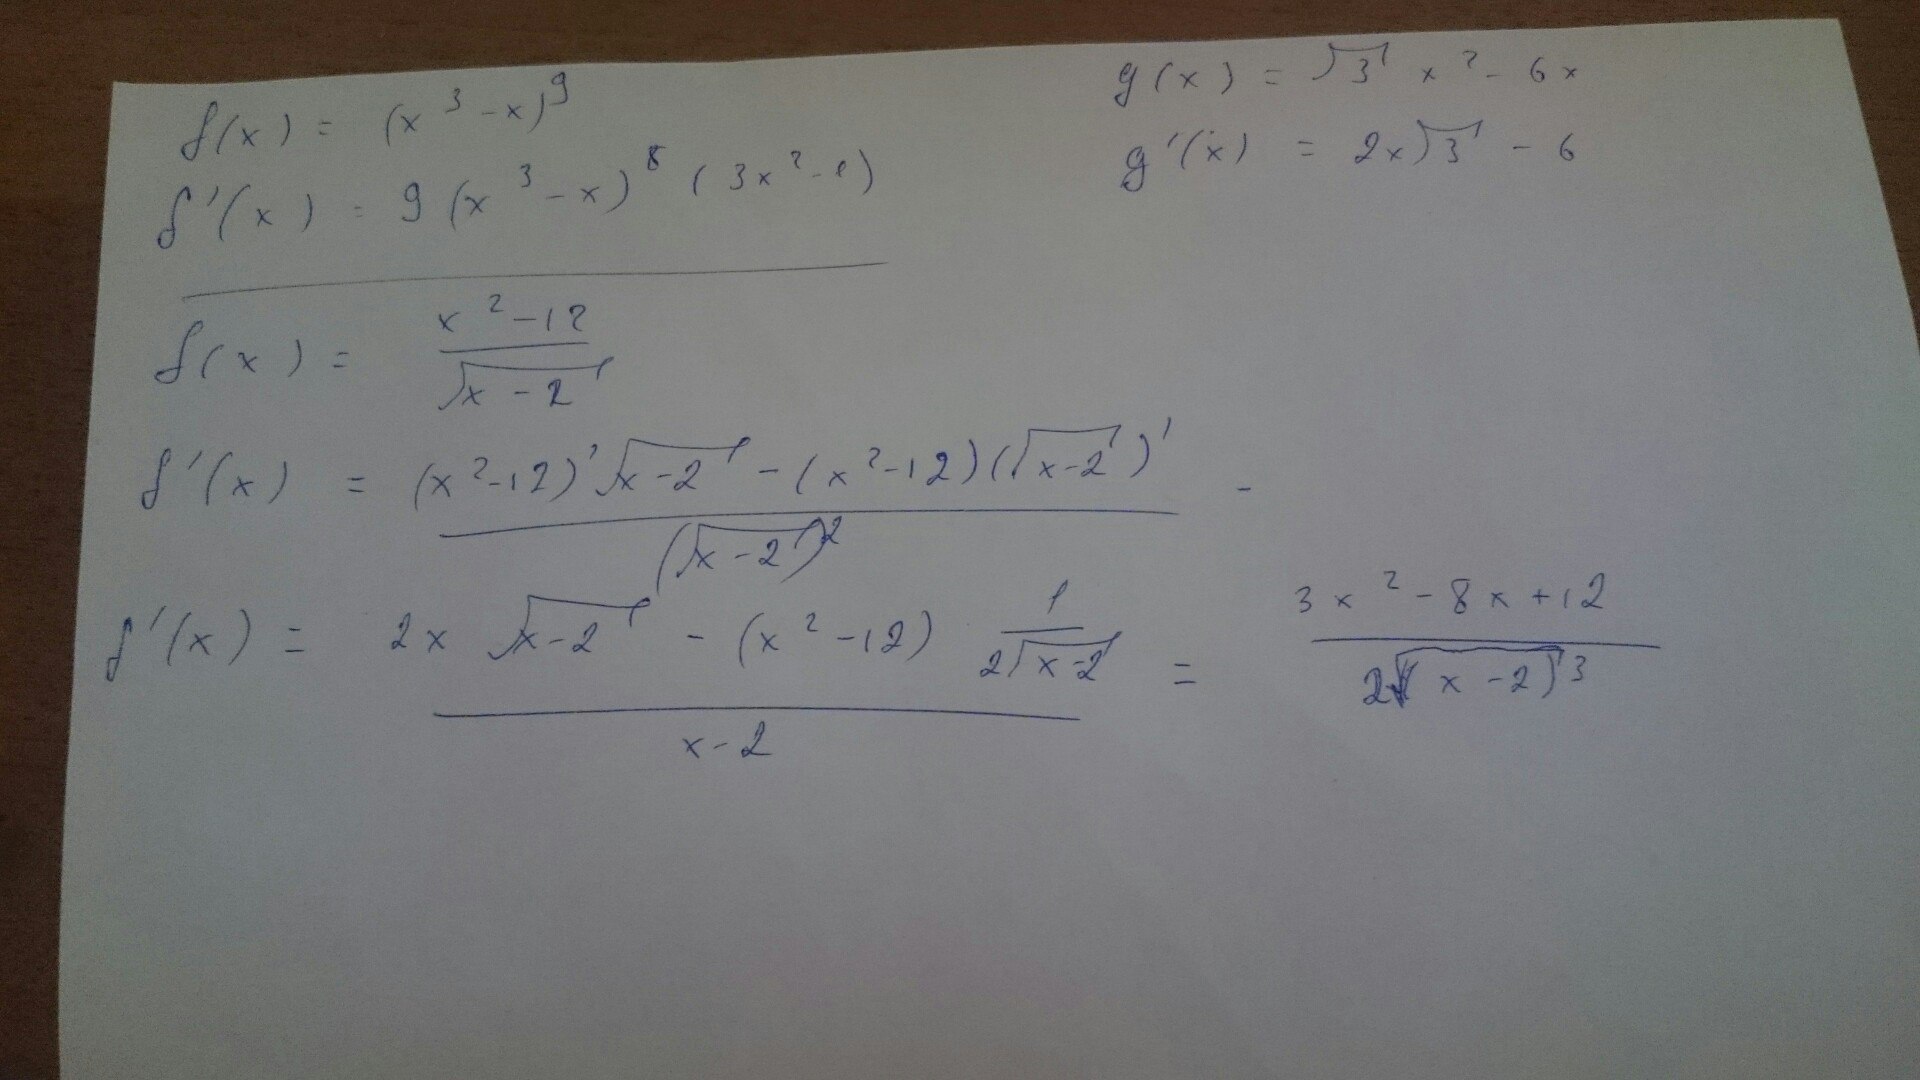 f(x) = (x³ - x)⁹
f'(x) = 9(x³ - x)⁸ (3x² - 1)
g(x) = √3 x² - 6x
g'(x) = 2x√3 - 6
f(x) = (x² - 12) / √(x - 2)
f'(x) = ((x² - 12)' √(x - 2) - (x² - 12)(√(x - 2))') / (√(x - 2))² -
f'(x) = (2x √(x - 2) - (x² - 12) 1/(2√(x - 2))) / (x - 2) = (3x² - 8x + 12) / (2√((x - 2)³))